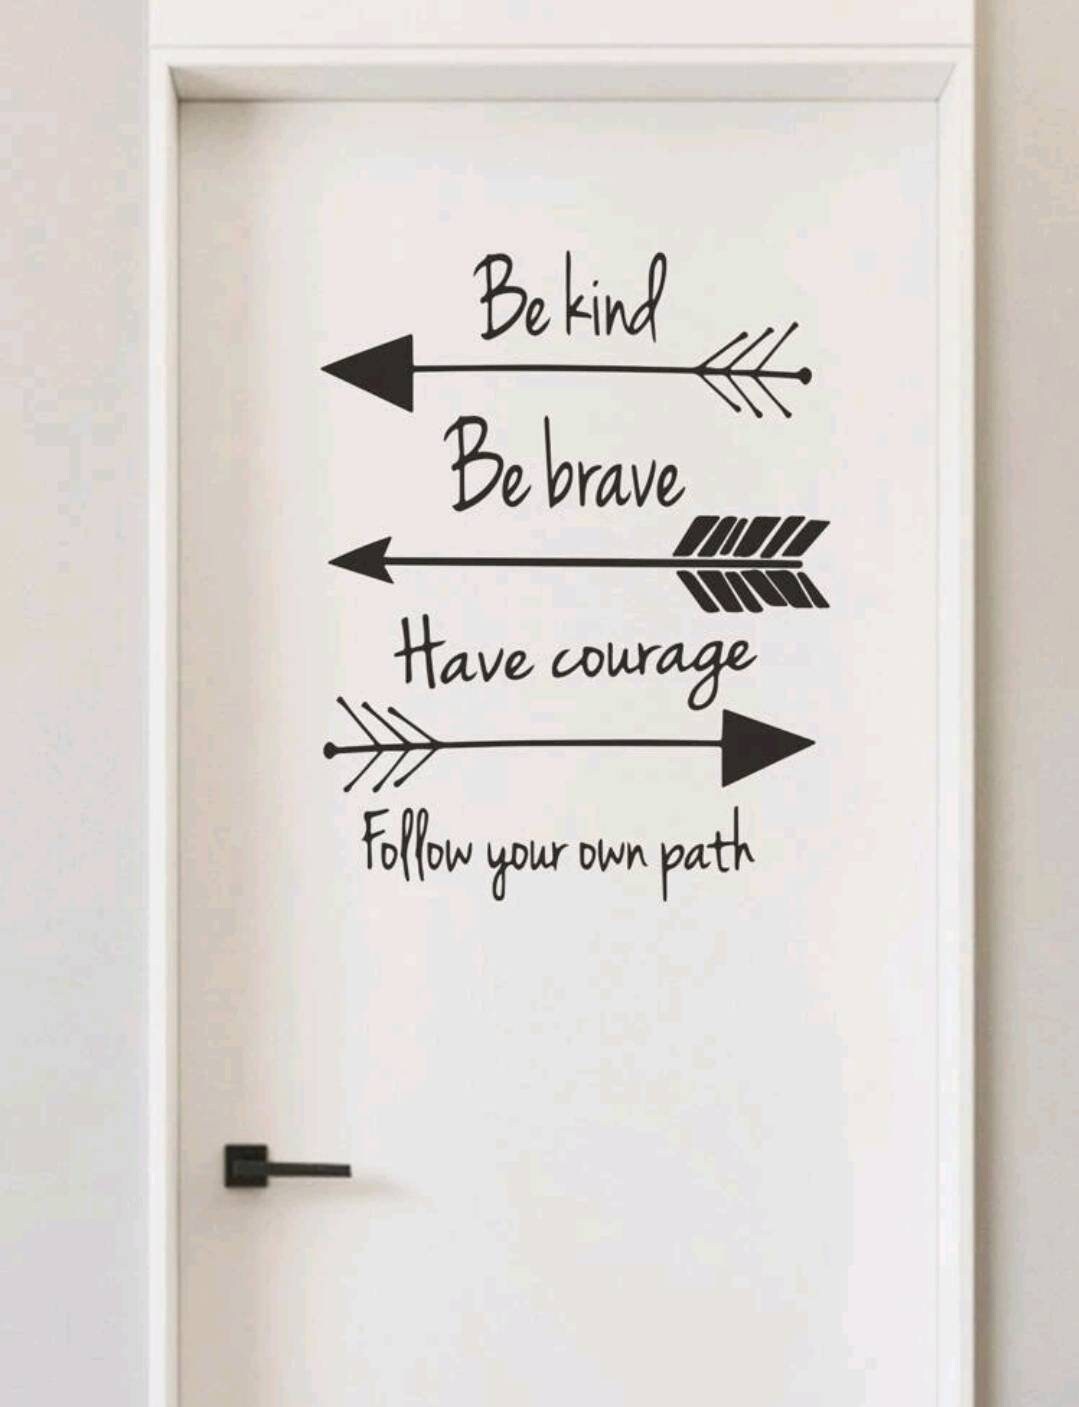 Be kind
Be brave
Have courage
Follow your own path